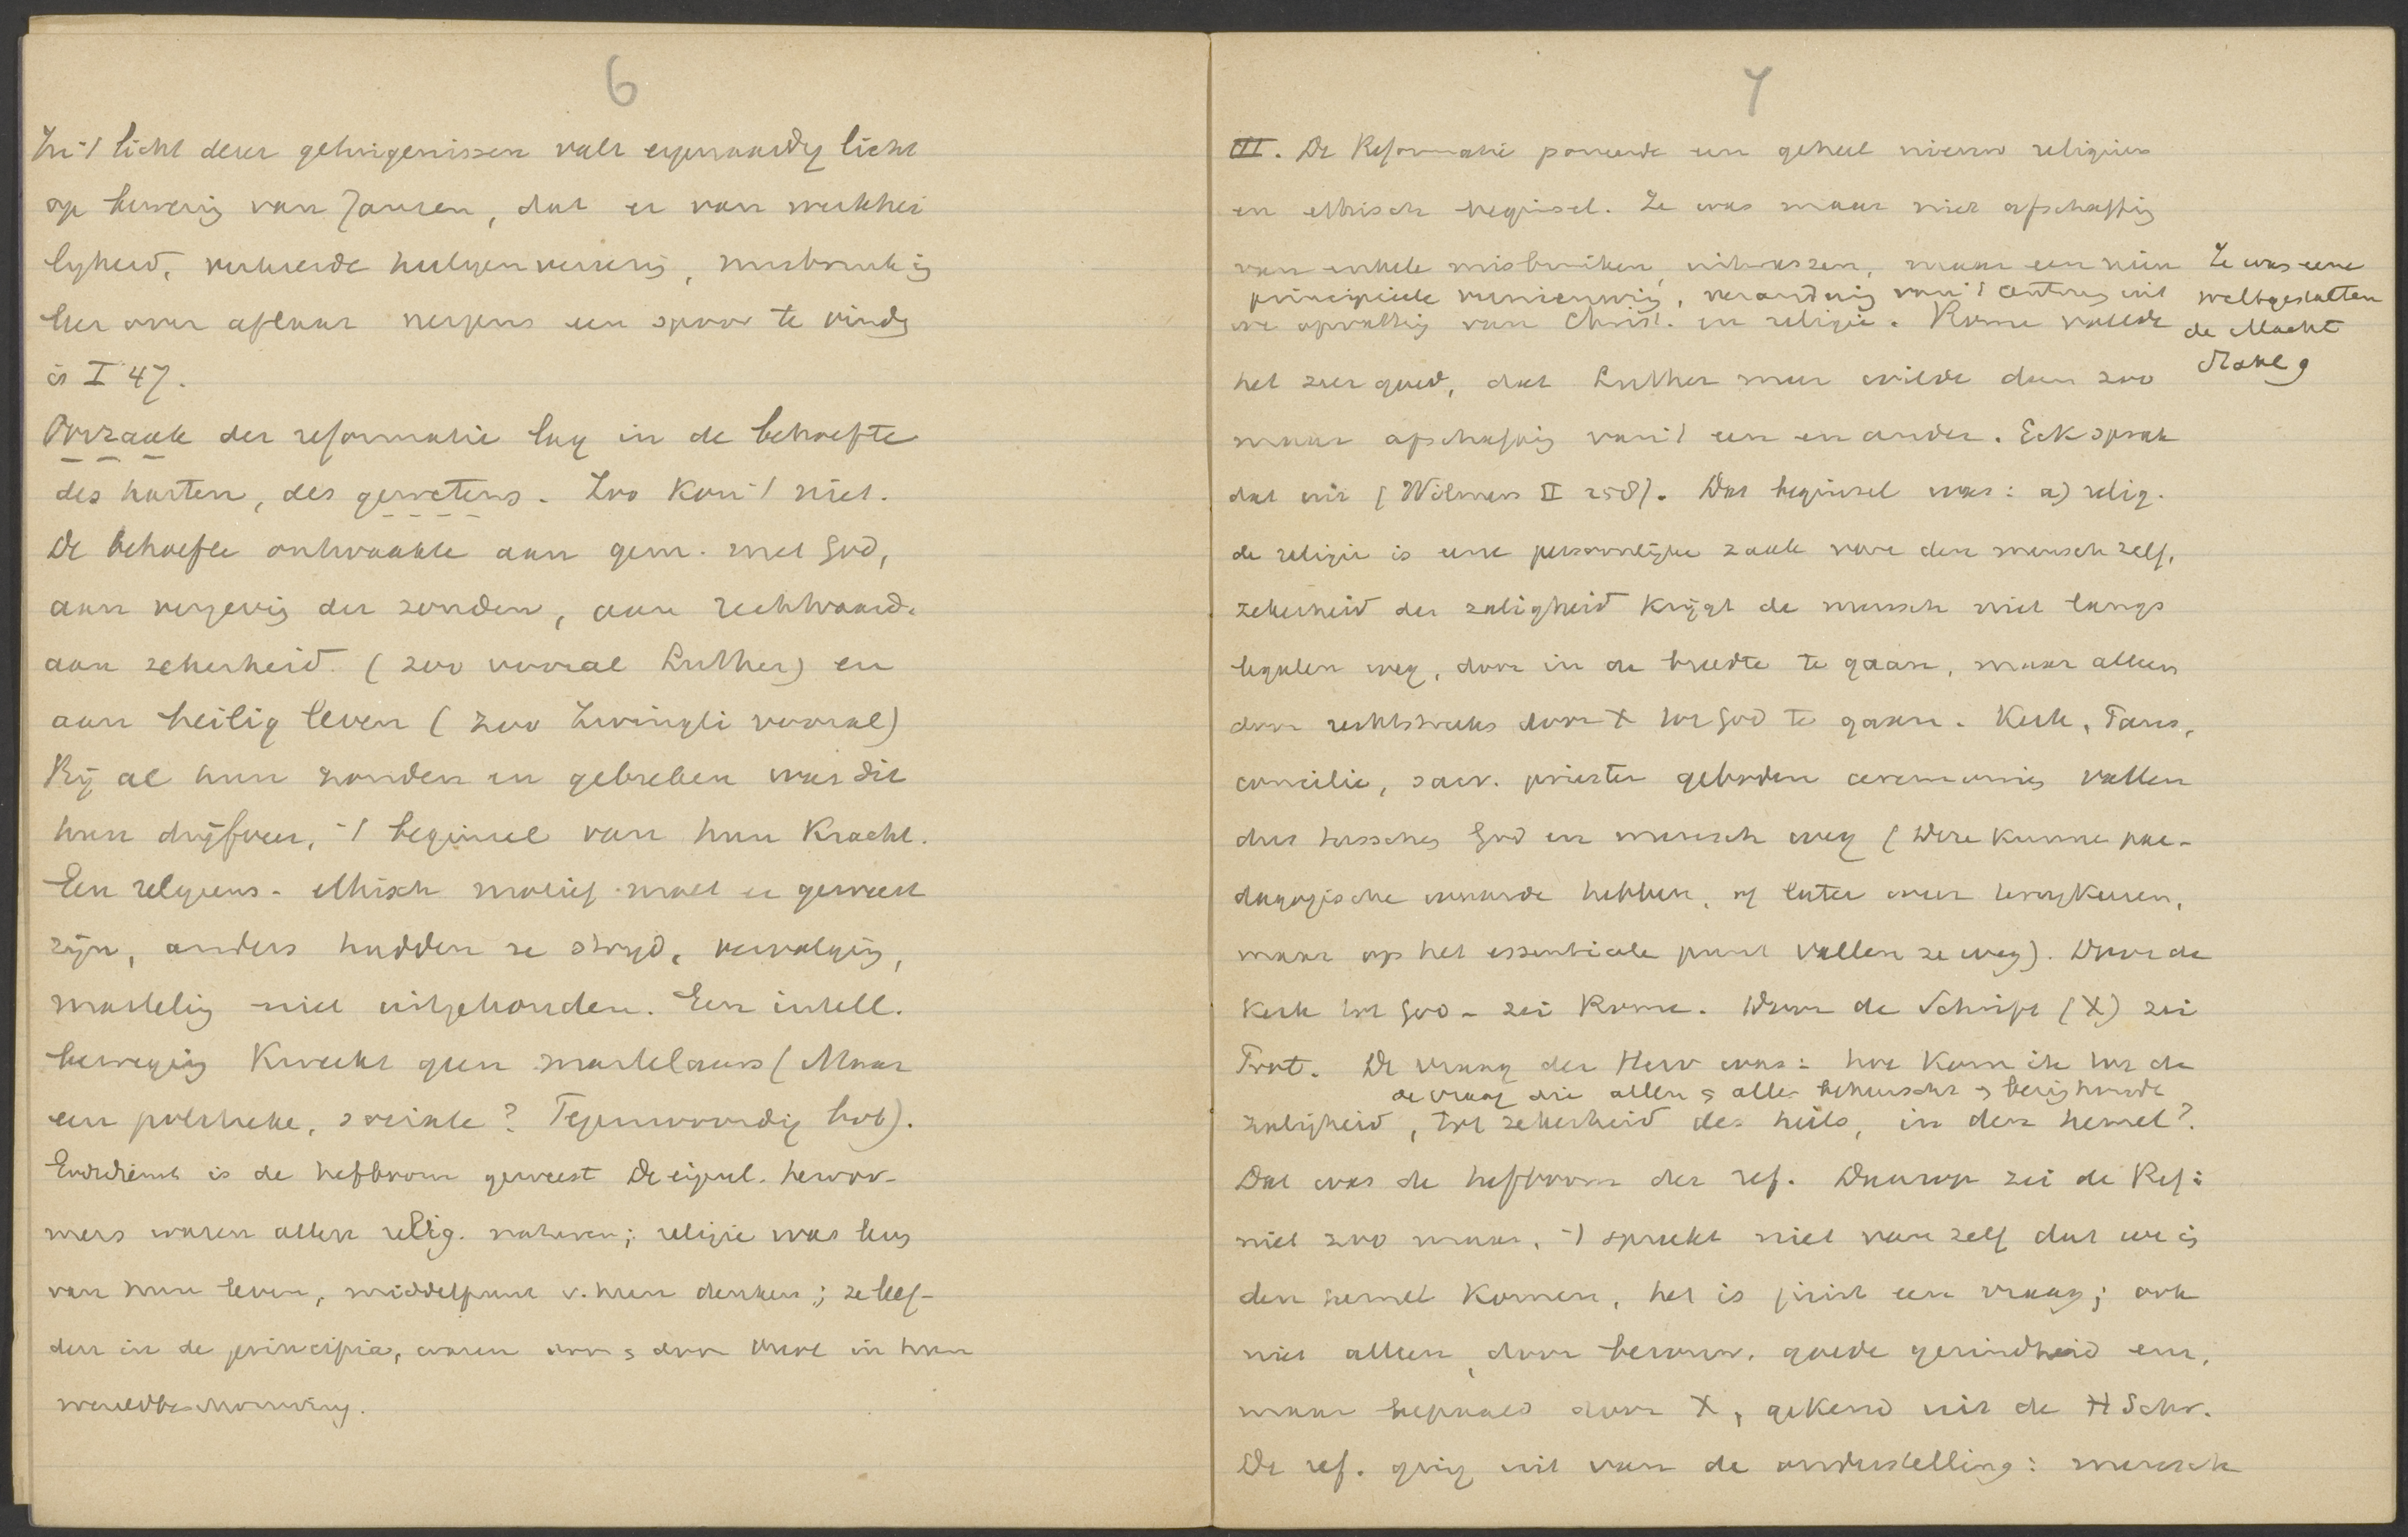 6
In 't licht dezer getuigenissen valt eigenaardig licht
op bewering van Janssen, dat er van werkhei
ligheid, verkeerde heiligenvereering, misbruik in
leer over aflaat nergens een spoor te vinden
is I 47.
Oorzaak der reformatie lag in de behoefte
des harten, des gewetens. Zoo kon 't niet.
De behoefte ontwaakte aan gem. met God,
aan vergeving der zonden, aan rechtvaard.
aan zekerheid (zoo vooral Luther) en
aan heilig leven (zoo Zwingli vooral)
Bij al hun zonden en gebreken was dit
hun drijfveer, 't beginsel van hun kracht.
Een religieus-ethisch motief moet er geweest
zijn, anders hadden ze strijd, vervolging,
marteling niet uitgehouden. Een intell.
beweging kweekt geen martelaars (Maar
een politieke, sociale? Tegenwoordig ook).
Godsdienst is de hefboom geweest De eigenl. hervor-
mers waren allen relig. naturen; religie was leus
van hun leven, middelpunt v. hun denken; ze leef-
den in de principia, waren door en door in hun
wereldbeschouwing.
7
III. De Reformatie poneerde een geheel nieuw religieus
en ethisch beginsel. Ze was maar niet afschaffing
van enkele misbruiken, uitwassen, maar een
principieele vernieuwing, verandering van 't centrum uit
opvatting van Christ. en religie. Rome voelde
Ze was eene
weltgestalten
de Macht
Stahl 9
het zeer goed, dat Luther meer wilde dan zoo
maar afschaffing van 't een en ander. Eck sprak
dat uit (Wilmers II 258). Dat beginsel was: a) relig.
de religie is eene persoonlijke zaak voor den mensch zelf,
zekerheid der zaligheid krijgt de mensch niet langs
legalen weg, door in de breedte te gaan, maar alleen
door rechtstreeks door X tot God te gaan. Kerk, Paus,
concilie, sacr. priester geboden ceremonies vallen
dus tusschen God en mensch weg (Deze kunnen pae-
dagogische waarde hebben, of later weer terugkeeren,
maar op het essentieele punt vallen ze weg). Door de
Kerk tot God - zei Rome. Door de Schrift (X) zei
Prot. De vraag der Herv was: hoe kom ik tot de
de vraag die allen en alles beheerschte en bezighield
zaligheid, tot zekerheid des heils, in den hemel?
Dat was de hefboom der ref. Daarop zei de Ref:
niet zoo maar, 't spreekt niet van zelf dat we in
den hemel komen, het is juist een vraag; ook
niet alleen door berouw, goede gezindheid enz,
maar bepaald door X, gekend uit de H Schr.
De ref. ging uit van de onderstelling: mensch